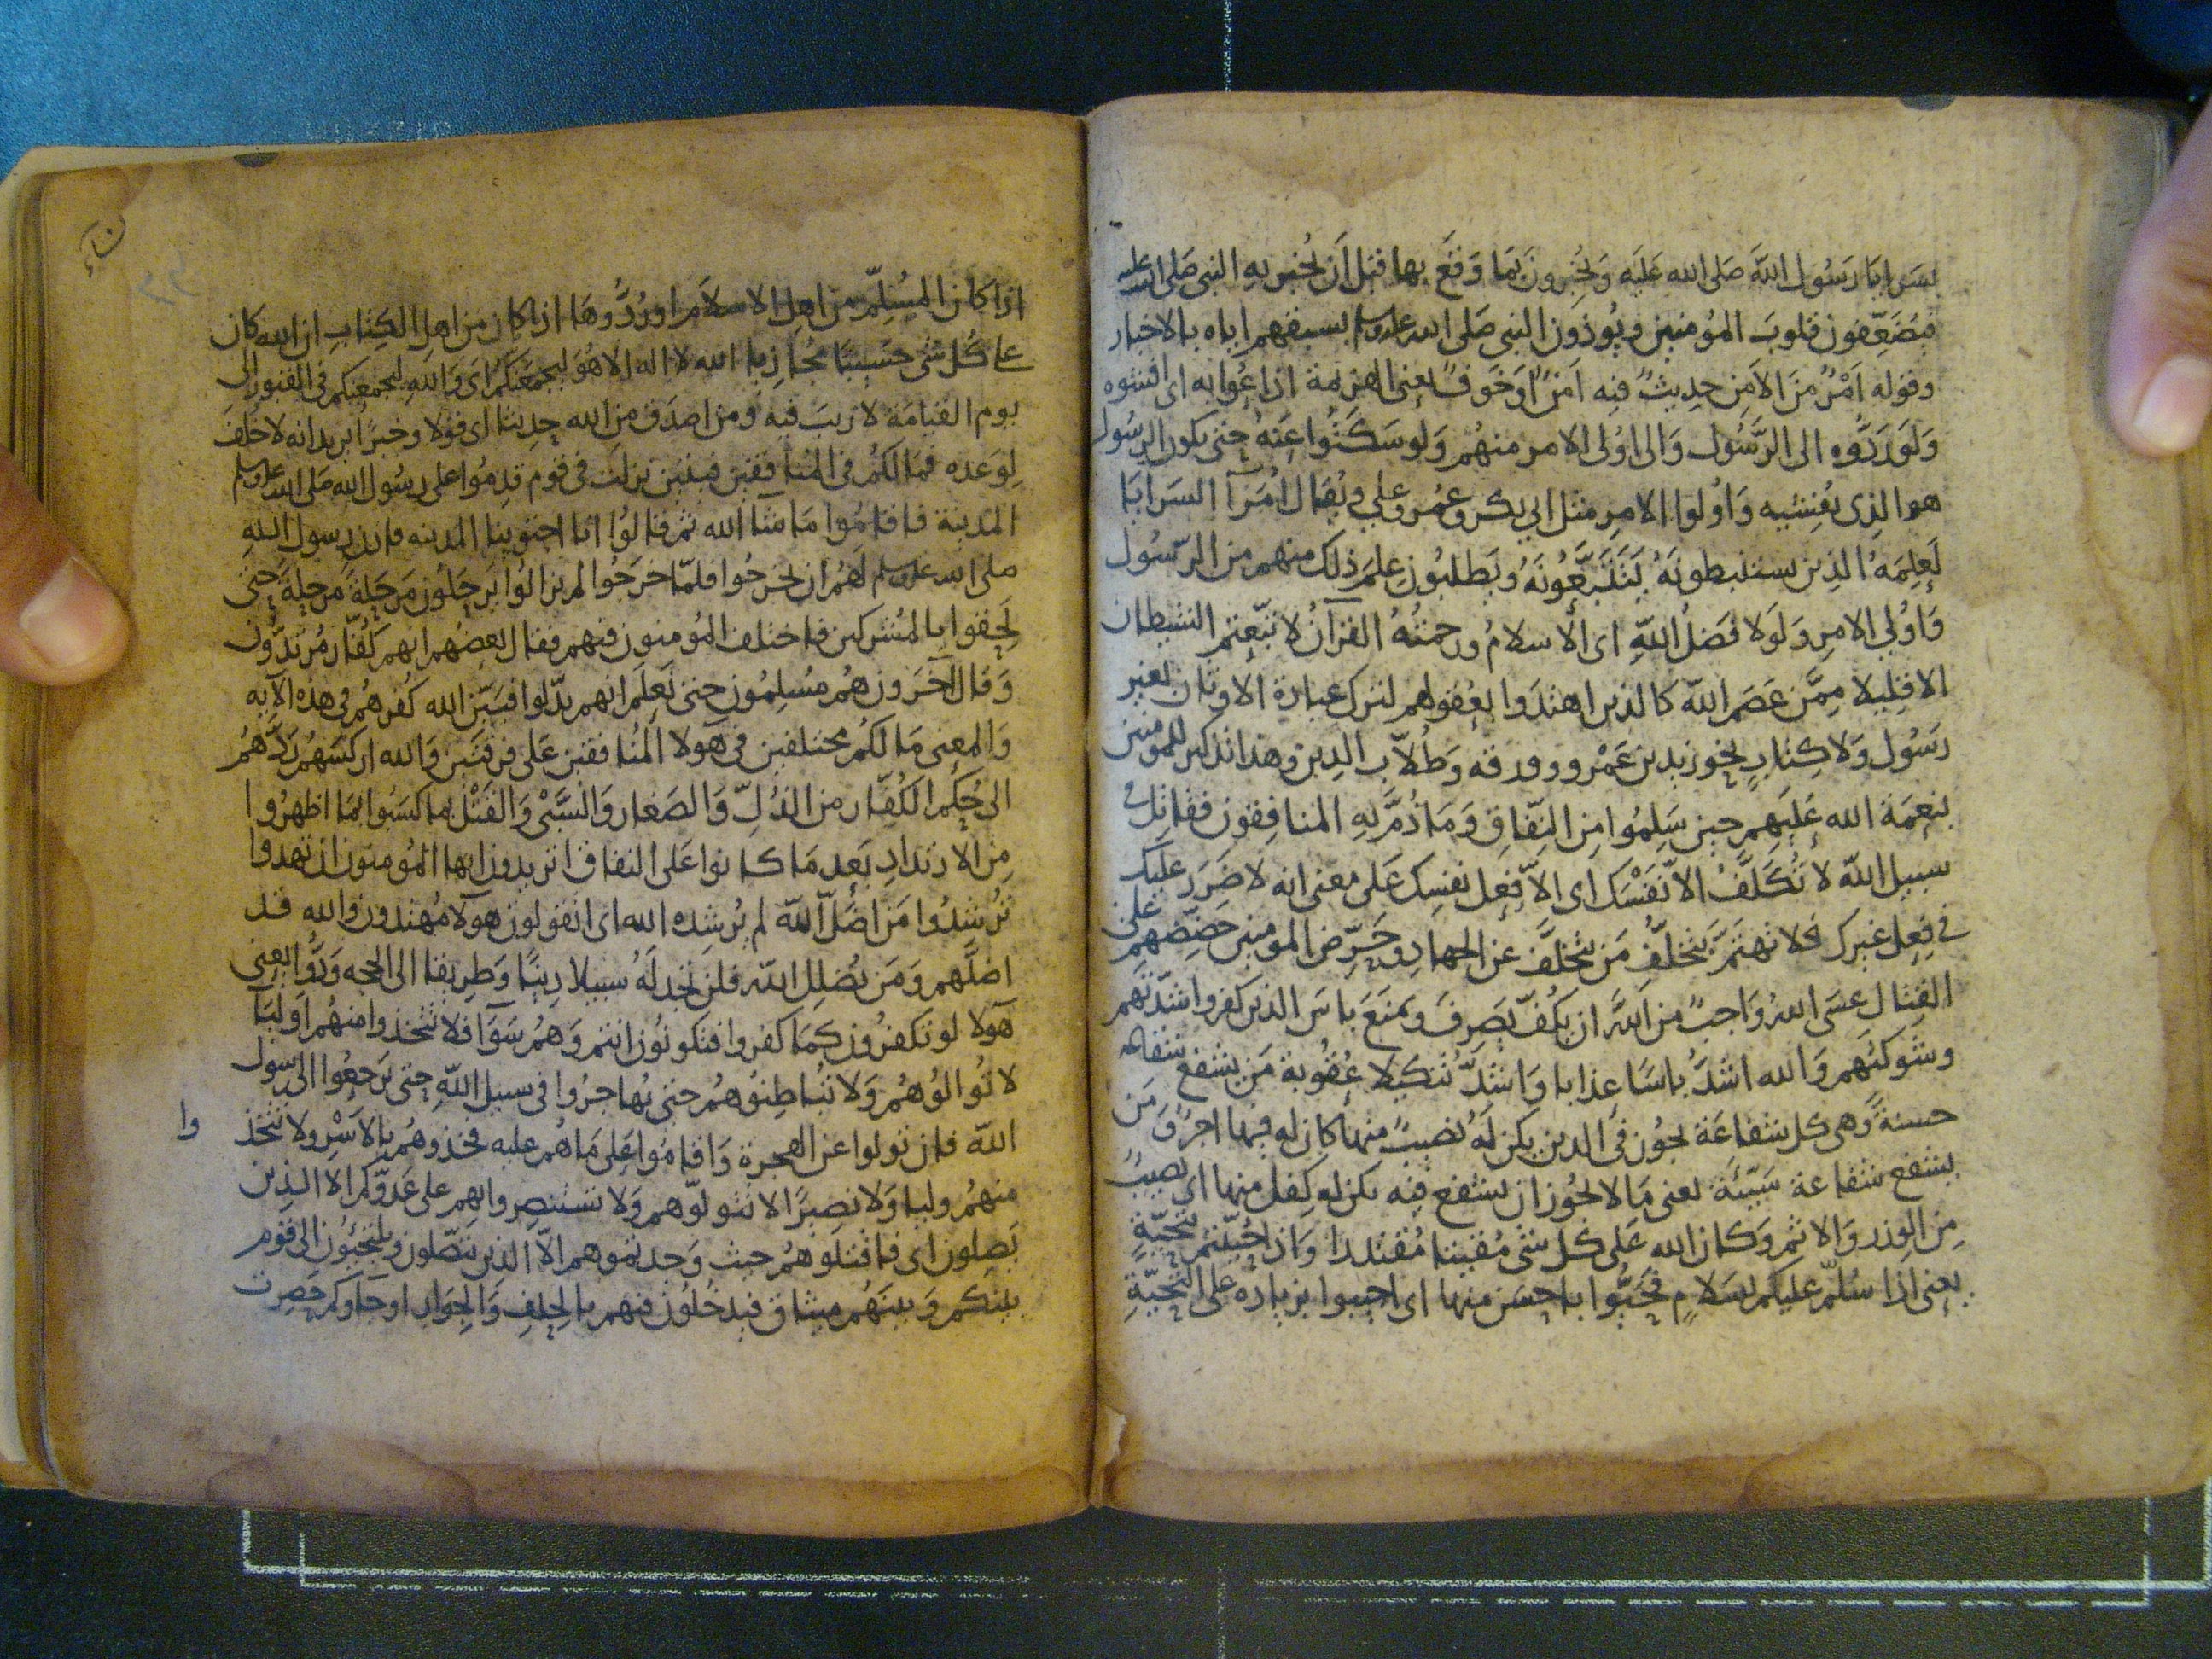 بسرايا رسول الله صلى الله عليه ويخبرون بما وقع بها قبل أن يخبر به النبي صلى الله عليه
فيُضَعِّفون قلوبَ المؤمنين ويُوذون النبي صَلى الله عليه وسلم بسبقهم اياه بالاخبار
وقوله اَمْرٌ مِّنَ الاَمنِ حديثٌ فيه اَمنٌ اَوخَوفٌ يعني الهزيمة اذاعُوا به اى افشوه
وَلَو رَدُّوه الى الرَّسُول وَالى اوُلى الامر منهُم وَلو سَكَتُوا عَنهُ حتى يكون الرسُول
هو الذى يُفشيه وَاُولوا الامرِ مثل ابى بكر وعُمر وعلي ويُقال اُمَرآ السَرايَا
لَعلِمَهُ الذين يستنبطونَهُ يَتَتَبَّعُونَهُ ويَطلبُون عِلمَ ذلك منهم من الرّسُول
وَاُولي الامرِ وَلَولا فَضلُ اللهِ اى الاسلامُ ورحمتُهُ القرآنُ لاتبَّعتم الشيطان
الاقليلا مِمَّن عَصَمَ اللهُ كالذين اهتدَوا بعقولهم لترك عبادة الاوثان بغير
رَسُول وَلا كِتابٍ نحو زيد بن عَمْرو وورقه وَطُلاّبِ الدين وهذا تذكير للمؤمنين
بنِعمَة الله عَليَهِم حين سَلِمُوا مِن النِّفَاقِ وَمَا ذُمَّ بِهِ المنافِقون فقاتل في
سبيل الله لا تُكَلَّفُ الاّ نَفْسَك اى الاّ فِعل نفسِك عَلى معنى انه لا ضَرَر عليَك
في فِعل غيرك فلا تهتَمَّ بتخلُّفِ مَن يتخلَّف عن الجهاد وحَرِّض المومنين حضّضهم على
القتال عسَى اللهُ وَاجبٌ من الله ان يكُفّ يَصرِفَ ويمنَعَ باسَ الذين كفروا شدّتَهم
وشوكتَهم وَالله اشدُّ باسًا عذابا وَاشدُّ تنكيلا عُقُوبةً مَن يشفع شفاعه
حسنةً وهى كل شفاعَة تجوُز في الدين يكن لَهُ نصيبٌ منها كان له فيها اجرٌ ومَن
يشفع شفاعة سَيّئَة يعنى مَا لا يجُوز ان يشفع فيه يكن له كِفل منها اى نصيبٌ
مِن الوزر وَالاثم وَكان الله عَلى كل شى مُقيتا مُقتدرا وَاذا حُيّيتم بتحيّةٍ
يعنى اذا سُلّم عليكم بسَلام فحَيُّوا باحسَن منها اى اجيبوا بزياده على التحيّةِ
نساء
اذا كان المُسلِّم من اهل الاسلام اورُدُّوهَا اذا كان من اهل الكِتابِ ان الله كان
على كُل شى حَسيبًا مُجازيا الله لا اله الا هُوَ ليجمعَنّكم اى وَاللهِ ليجمعنكم فى القبور الى
يوم القيامَة لا ريبَ فيه ومن اصدَق من الله حديثا اى قولا وخبرًا يريد انه لا خُلفَ
لِوَعده فمَا لكم فى المُنافقين فئتين نزلت في قوم قدِمُوا على رسُول الله صَلى الله عليه وسلم
المدينة فاقامُوا مَا شا الله ثم قالوُا انا اجتوينا المدينه فاذن رسول اللهِ
صلى الله عليه وسلم لَهُم ان يخرجُوا فلمّا خرَجُوا لم يزالوُا يَرحَلُون مَرحَلةً مرحلة حتى
لَحِقوا بالمُشركين فاختلف المُؤمنون فيهم فقال بعضُهم انهم كُفّار مُرتدُّون
وَقال آخَرون هُم مُسلِمُون حتى نَعلَم انهم بدّلوا فبيّن الله كُفرهُم في هذه الآيه
وَالمعنى مَا لكُم مختلفين في هولا المُنافقين عَلى فرقتَين وَالله اركسَهُم رَدَّهُم
الى حُكمِ الكُفّار من الذُلّ وَالصَغار وَالسَّبْى وَالقَتْل بما كسَبُوا بمَا اظهرُوا
مِن الارتدادِ بَعد مَا كانوا عَلى النفاق اتريدون ايها المُومنون ان تهدوا
تُرشدُوا مَن اضَلّ اللهُ لم يُرشده الله اى اتقولون هولآ مُهتدون وَالله قد
اضلَّهم وَمَن يُضلِل اللهُ فلن تجد لَهُ سبيلا دِينًا وَطريقا الى الحجه وَدُّوا يعنى
هولآ لو تكفرُون كمَا كفروا فتكونُون انتم وَهُم سَوآ فلا تتخذوا منهُم اَولِيآ
لا تُوالُوهُم وَلا تُباطِنُوهُم حتى يُهاجرُوا في سبيل اللهِ حتى يَرجعُوا الى رسول
الله فان تولوا عن الهجرة وَاقامُوا عَلى مَا هُم عليه فخذوهُم بالاَسْرِ ولا تتخذ وا
منهُم وليا وَلا نصيرًا لا تتولّوهم وَلا تستنصِروا بهم على عَدوّكم الا الذين
يَصِلون اى فاقتلوهُم حيث وَجدتموهم الاّ الذين يتّصلون ويلتجئون الى قوم
بينكم وَبينَهُم ميثاق فيدخُلُون فيهم بالحِلفِ وَالجِوَار او جآوكم حَصِرت